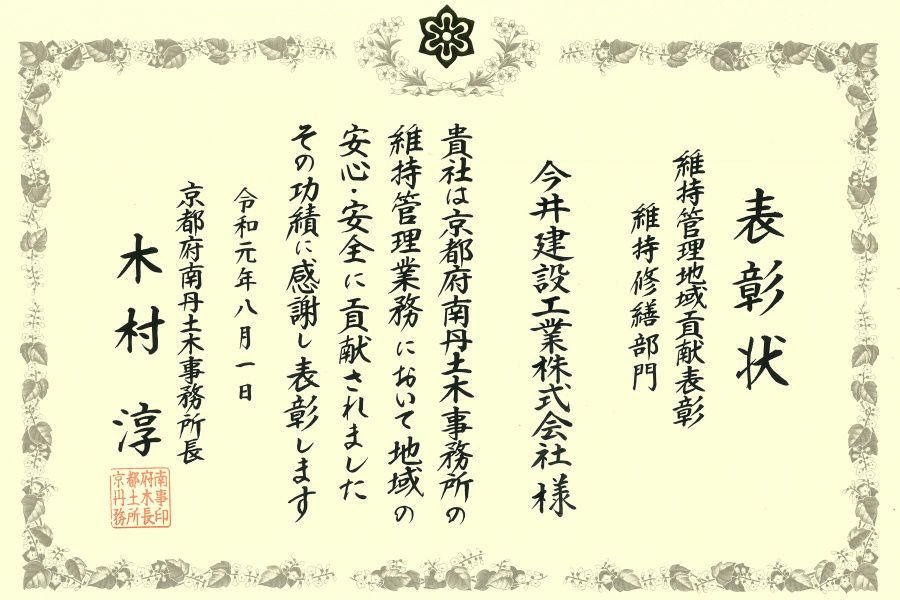 表彰状
維持管理地域貢献表彰
維持修繕部門
今井建設工業株式会社様
貴社は京都府南丹土木事務所の
維持管理業務において地域の
安心・安全に貢献されました
その功績に感謝し表彰します
令和元年八月一日
京都府南丹土木事務所長
木村淳
南事印
府木長
都土所
京丹務